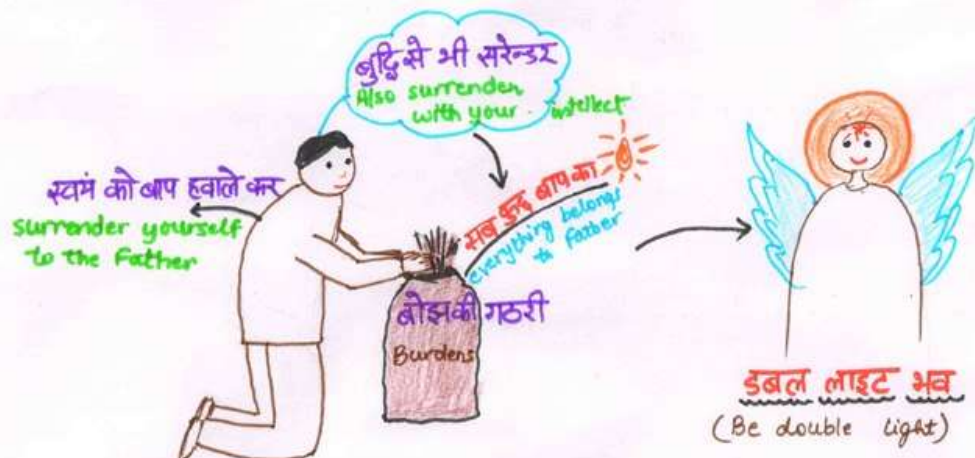 बुद्धि से भी सरेन्डर
Also surrender
with your intellect
स्वयं को बाप हवाले कर
surrender yourself
to the Father
सब कुछ बाप का
everything belongs
to father
बोझ की गठरी
Burdens
डबल लाइट भव
(Be double light)